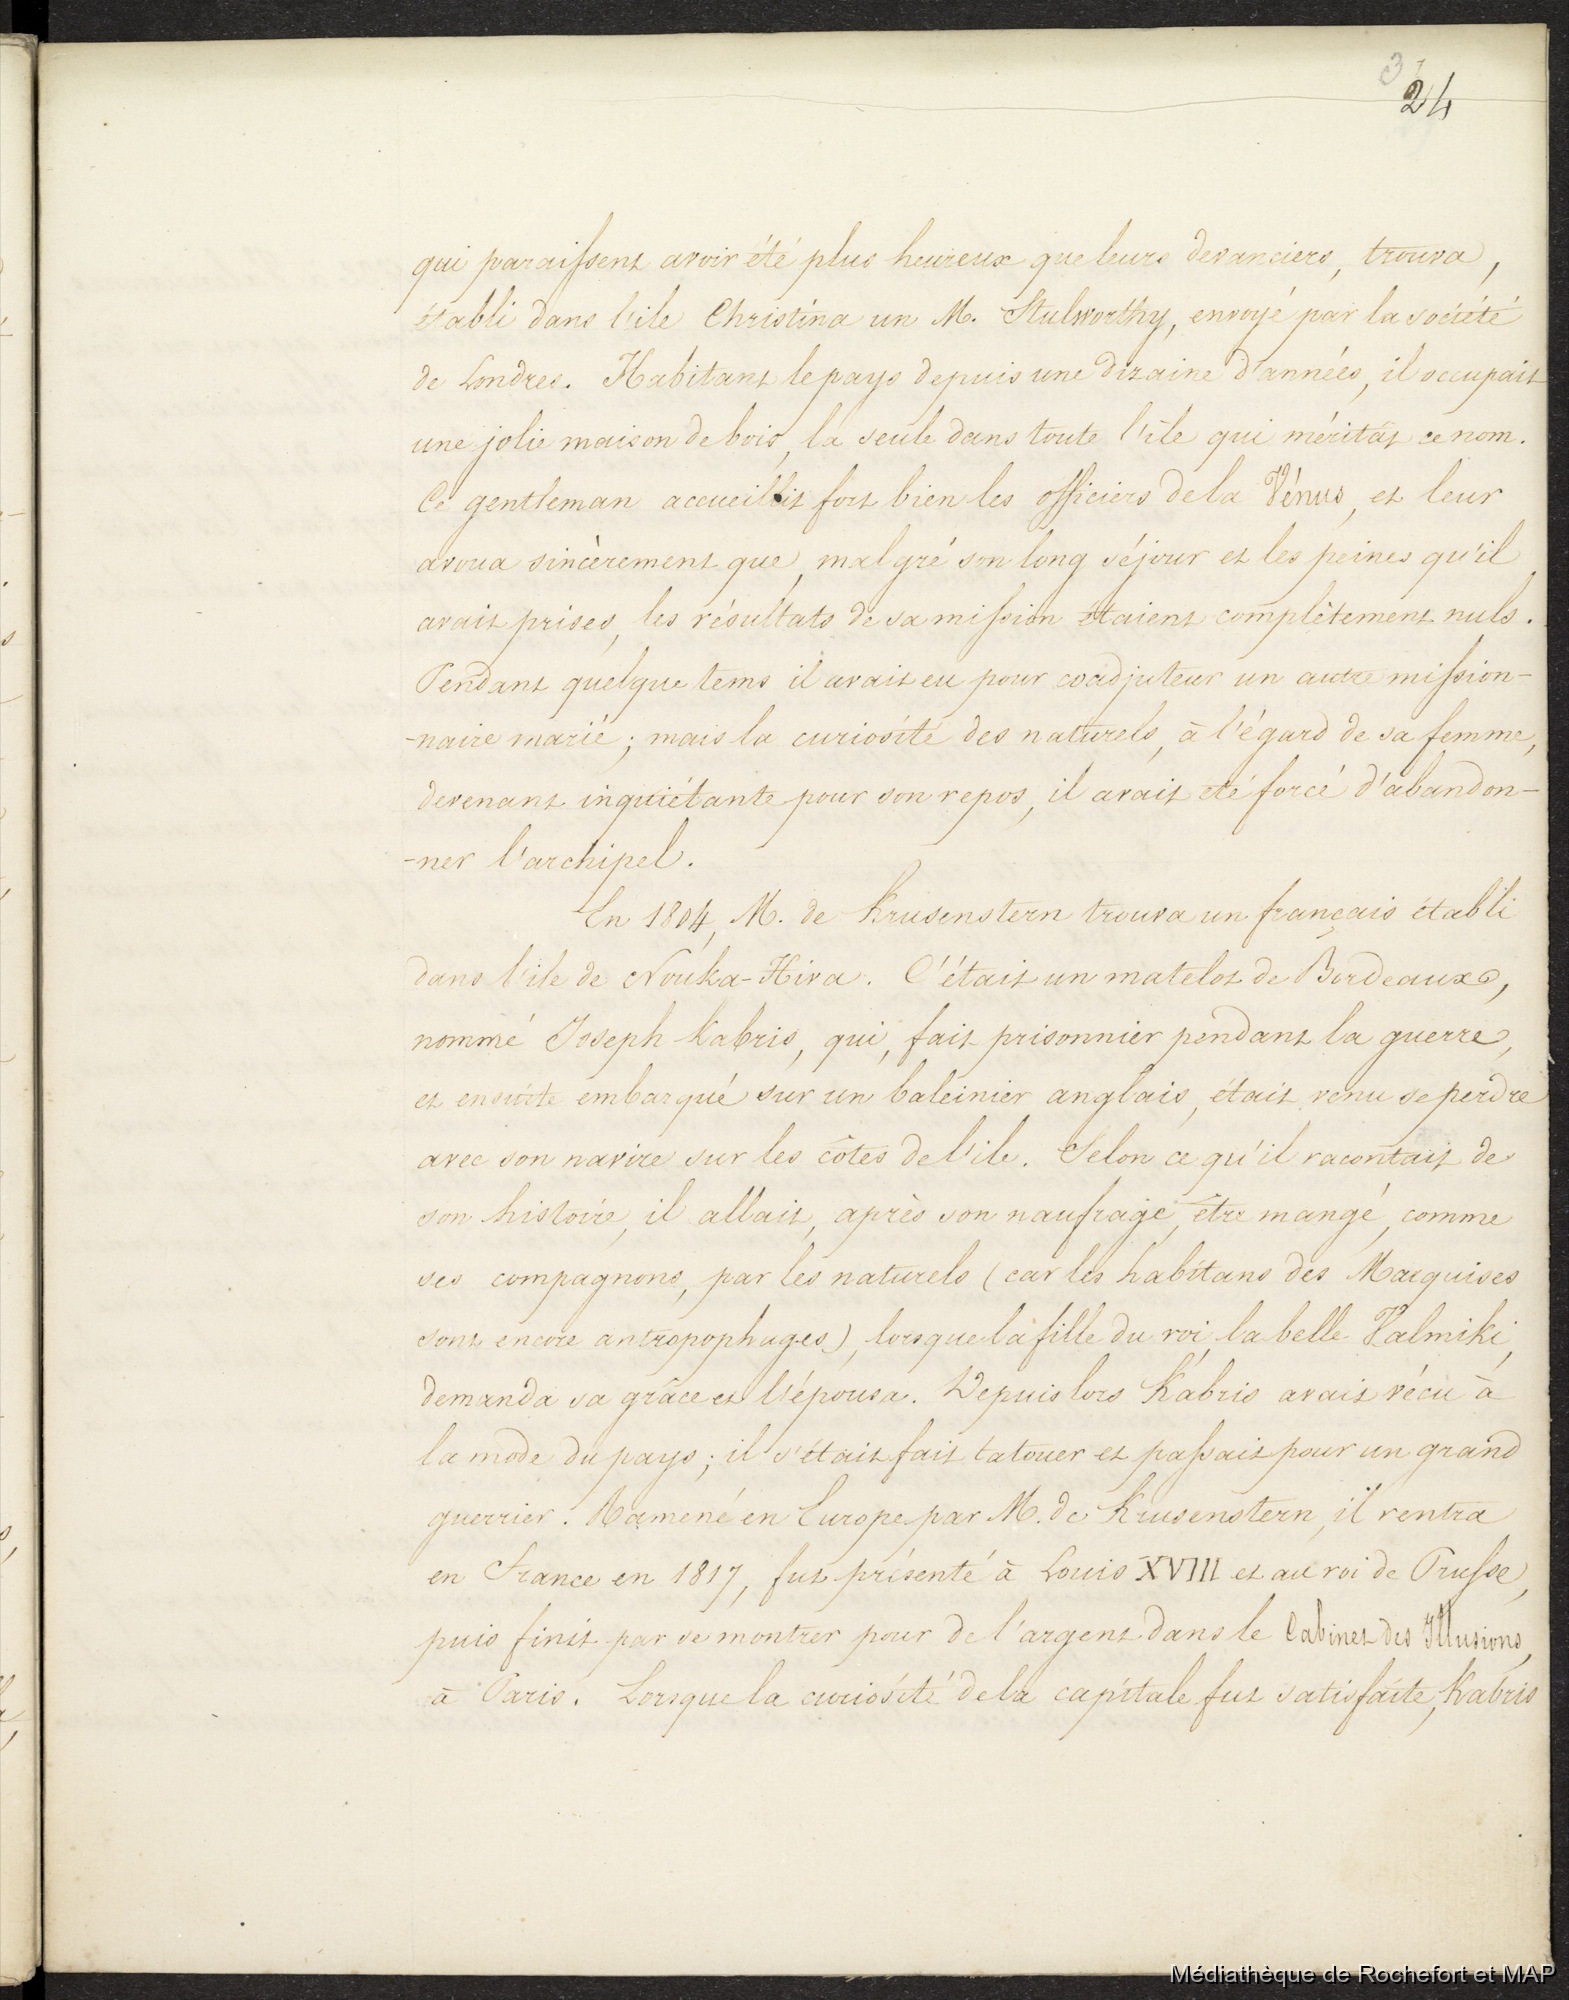 31
24
qui paraissent avoir été plus heureux que leurs devanciers, trouva,
établi dans l'ile Christina un M. Stulworthy, envoyé par la société
de Londres. Habitant le pays depuis une dizaine d'années, il occupait
une jolie maison de bois, la seule dans toute l'île qui méritât ce nom.
Ce gentleman accueillit fort bien les officiers de la Vénus, et leur
avoua sincèrement que, malgré son long séjour et les peines qu'il
avait prises, les résultats de sa mission étaient complètement nuls.
Pendant quelque tems il avait eu pour coadjuteur un autre mission-
-naire marié; mais la curiosité des naturels, à l'égard de sa femme,
devenant inquiétante pour son repos, il avait été forcé d'abandon-
-ner l'archipel.
En 1804, M. de Krusenstern trouva un français établi
dans l'ile de Nouka-Hiva. C'était un matelot de Bordeaux,
nommé Joseph Kabris, qui, fait prisonnier pendant la guerre,
et ensuite embarqué sur un baleinier anglais, était venu se perdre
avec son navire sur les côtes de l'ile. Selon ce qu'il racontait de
son histoire, il allait, après son naufrage, être mangé, comme
ses compagnons, par les naturels (car les habitans des Marquises
sont encore antropophages), lorsque la fille du roi, la belle Valmiki,
demanda sa grâce et l'épousa. Depuis lors Kabris avait vécu à
la mode du pays; il s'était fait tatouer et passait pour un grand
guerrier. Ramené en Europe par M. de Krusenstern, il rentra
en France en 1817, fut présenté à Louis XVIII et au roi de Prusse,
puis finit par se montrer pour de l'argent dans le Cabinet des Illusions,
à Paris. Lorsque la curiosité de la capitale fut satisfaite, Kabris
Médiathèque de Rochefort et MAP